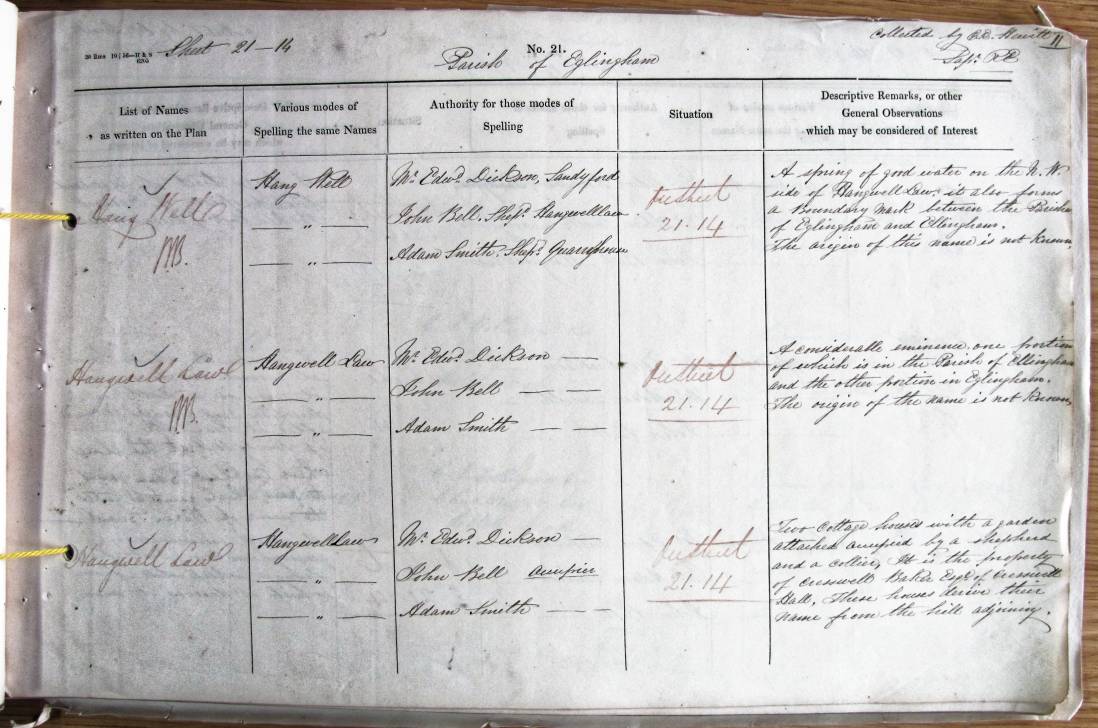 Sheet 21-14
No. 21.
Collected by Hewitt
11
Parish of Eglingham
Sapr. RE
List of Names
as written on the Plan
Various modes of
Spelling the same Names
Authority for those modes of
Spelling
Situation
Descriptive Remarks, or other
General Observations
which may be considered of Interest
Hang Well
Hang Well
— „ —
— „ —
Mr. Edwd. Dickson, Sandyford
John Bell. Shepd. Hangwelllaw
Adam Smith. Shepd. Quarryhouse
21.14
A spring of good water on the N.W.
side of Hangwell Law. it also forms
a Boundary Mark between the Parishes
of Eglingham and Ellingham.
The origin of this name is not Known,
Hangwell Law
Hangwell Law
— „ —
— „ —
Mr. Edwd. Dickson —
John Bell — —
Adam Smith — —
21.14
A considerable eminence one portion
of which is in the Parish of Ellingham
and the other portion in Eglingham.
The origin of the name is not Known,
Hangwell Law
HangwellLaw
— „ —
— „ —
Mr. Edwd. Dickson —
John Bell occupier
Adam Smith — —
21.14
Two Cottage houses with a garden
attached occupied by a shepherd
and a collier, It is the property
of Cresswell Baker Esqr. of Cresswell
Hall, These houses derive their
name from the hill adjoining.